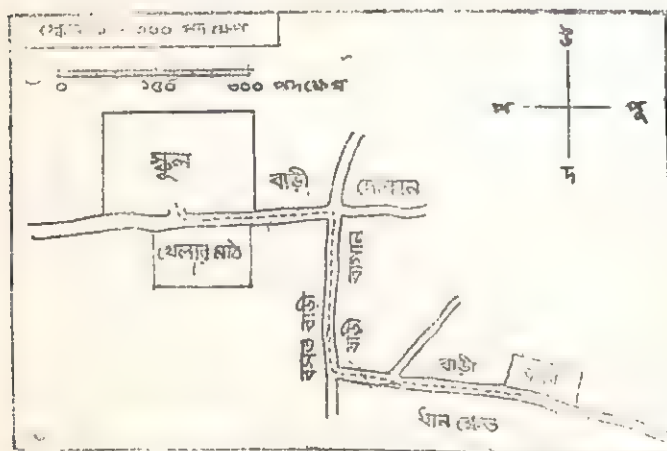 ৩০০ পদক্ষেপ
০ ১৫০ ৩০০ পদক্ষেপ
উ
প পূ
দ
স্কুল
বাড়ী দোকান
খেলার মাঠ
বাগান
বসত বাড়ী
বাড়ী
বাড়ী
ধান ক্ষেত